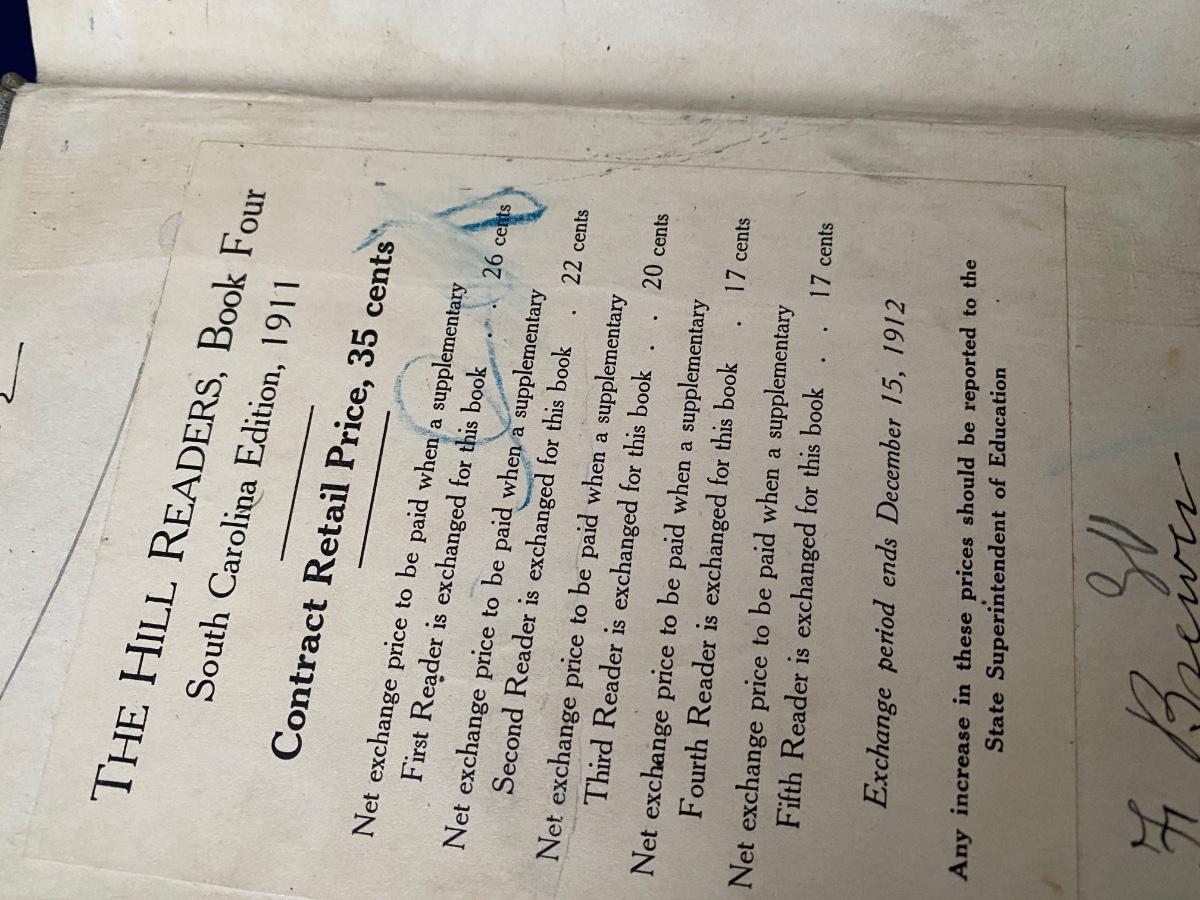 THE HILL READERS, Book Four
South Carolina Edition, 1911
Contract Retail Price, 35 cents
Net exchange price to be paid when a supplementary
First Reader is exchanged for this book . . 26 cents
Net exchange price to be paid when a supplementary
Second Reader is exchanged for this book . 22 cents
Net exchange price to be paid when a supplementary
Third Reader is exchanged for this book . . 20 cents
Net exchange price to be paid when a supplementary
Fourth Reader is exchanged for this book . 17 cents
Net exchange price to be paid when a supplementary
Fifth Reader is exchanged for this book . . 17 cents
Exchange period ends December 15, 1912
Any increase in these prices should be reported to the
State Superintendent of Education